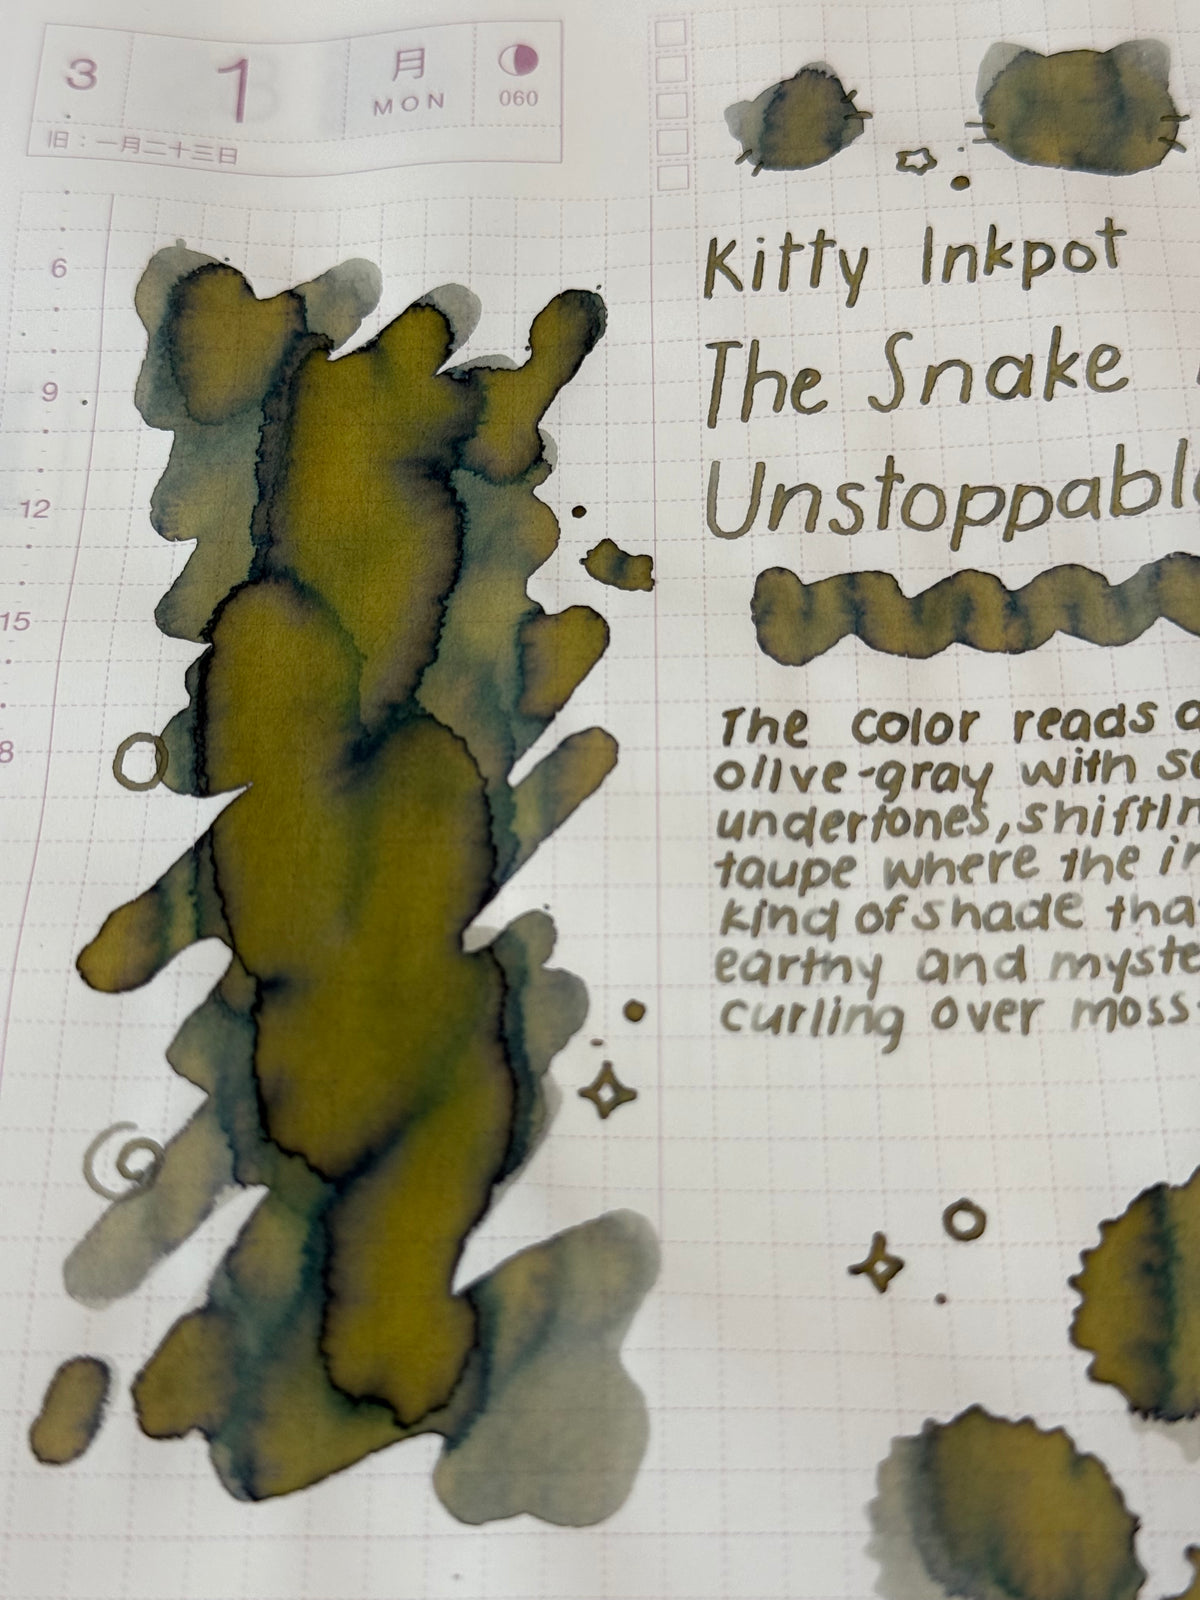 3 1 月 MON 060
旧：一月二十三日
6
9
12
15
8
Kitty Inkpot
The Snake
Unstoppabl
The color reads a
olive-gray with so
undertones, shiftin
taupe where the in
kind of shade tha
earthy and myste
curling over moss